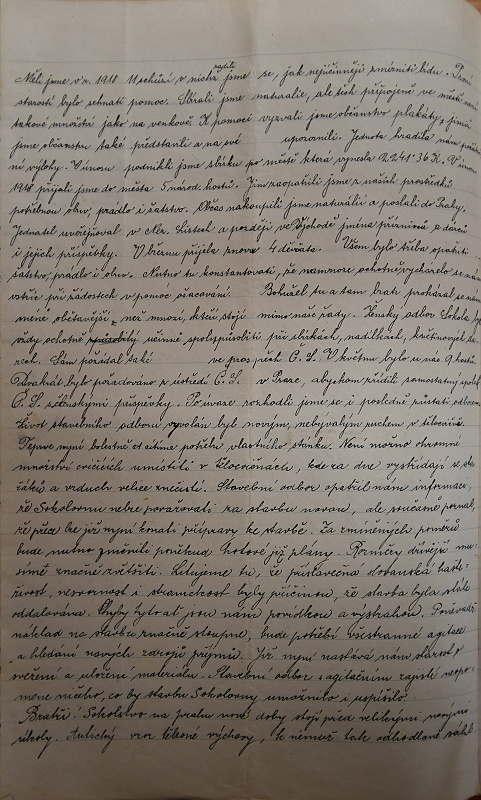 Měli jsme v r. 1918 11 schůzí v nichž radili jsme se, jak nejúčinněji zmírniti bídu. První
starostí bylo sehnati pomoc. Sbírali jsme naturalie, ale těch přirozeně ve městě není
takové množství jako na venkově. K pomoci vyzvali jsme občanstvo plakáty, jimiž
jsme občanstvu také představili a na své upozornili. Jednota hradila nám
ní výlohy. V únoru podnikli jsme sbírku po městě která vynesla 2241·36 K. V únoru
1918 přijali jsme do města 5 národ. hostí. Jim zaopatřili jsme z našich prostředků
potřebnou obuv, prádlo i šatstvo. Občas nakoupili jsme naturalií a poslali do Prahy.
Jednatel uveřejňoval v Nár. Listech a později ve Východě jména příznivců a dárců
i jejich příspěvky. V březnu přijela znova 4 děvčata. Všem bylo třeba opatřiti
šatstvo, prádlo i obuv. Nutno tu konstatovati, že namnoze ochotně vycházelo se nám
vstříc při žádostech o pomoc ošacování. Bohužel tu a tam bratr prokázal se
méně občanější než mnozí, kteří stojí mimo naše řady. Ženský odbor Sokola byl
vždy ochotně účinně spolupůsobiti při sbírkách, nadílkách, květinových
Sám pořádal také ve prospěch Č. S. V květnu bylo u nás 9 hostů.
Dvakrát bylo požadováno z ústředí Č. S. v Praze, abychom zřídili samostatný spolek
Č. S. s členskými příspěvky. Po úvaze rozhodli jsme se i posledně zůstati odborem.
Život stavebního odboru vyvolán byl novým, nebyvalým ruchem v tělocvičně.
Teprve nyní bolestně cítíme potřebu vlastního stánku. Není možno ohromné
množství cvičících umístiti v tělocvičnách, kde za dne vystřídají se
žáků a vzduch velice znečistí. Stavební odbor opatřil nám informace,
že Sokolovnu nelze považovati za stavbu novou, ale současně poznal,
že přec lze již nyní konati přípravy ke stavbě. Za změněných poměrů
bude nutno změniti poněkud hotové již plány. Rozměry dřívější mu-
síme značně zvětšiti. Litujeme tu, že přílišná
nesvornost i strannictví byly příčinou, že stavba byla stále
oddalována. Chyby tytéž jsou nám pobídkou a výstrahou. Poněvadž
náklad na stavbu značně stoupne, bude potřebí všestranné agitace
a hledání nových zdrojů příjmů. Již nyní nastává nám starost
svežení a uložení materialu. Stavební odbor s agitačním zajisté neopo-
mene ničeho, co by stavbu Sokolovny umožnilo i uspíšilo.
Bratři! Sokolstvo na prahu nové doby stojí před velikými novými
úkoly. Antický vzor tělesné výchovy, k němuž tak odhodlaně sáhl